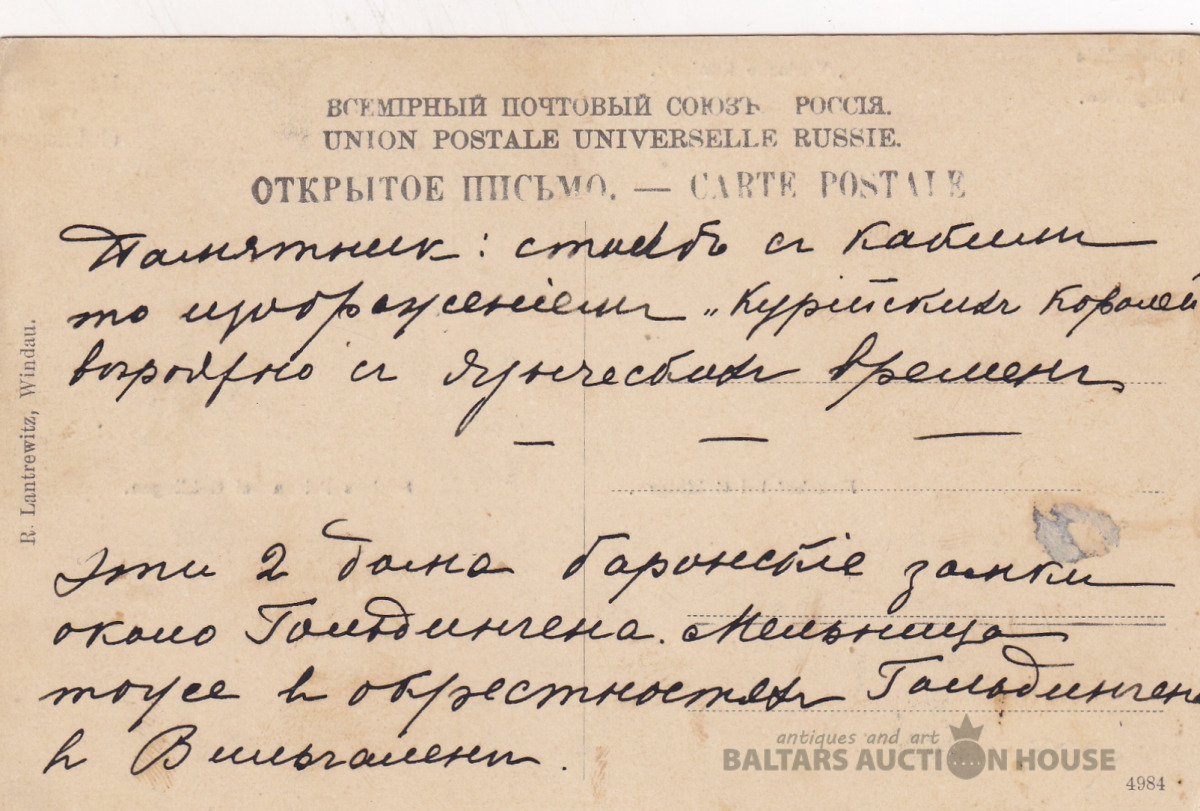 ВСЕМІРНЫЙ ПОЧТОВЫЙ СОЮЗЪ РОССІЯ.
UNION POSTALE UNIVERSELLE RUSSIE.
ОТКРЫТОЕ ПИСЬМО. — CARTE POSTALE
Памятник: столбъ съ
то изображеніемъ „Курійскихъ Королей
вѣроятно съ языческихъ временъ.
— — —
Эти 2 дома баронскіе замки
около Гольдингена. Мельница
тоже въ окрестностяхъ Гольдингена
въ
R. Lantrewitz, Windau.
antiques and art
BALTARS AUCTION HOUSE
4984